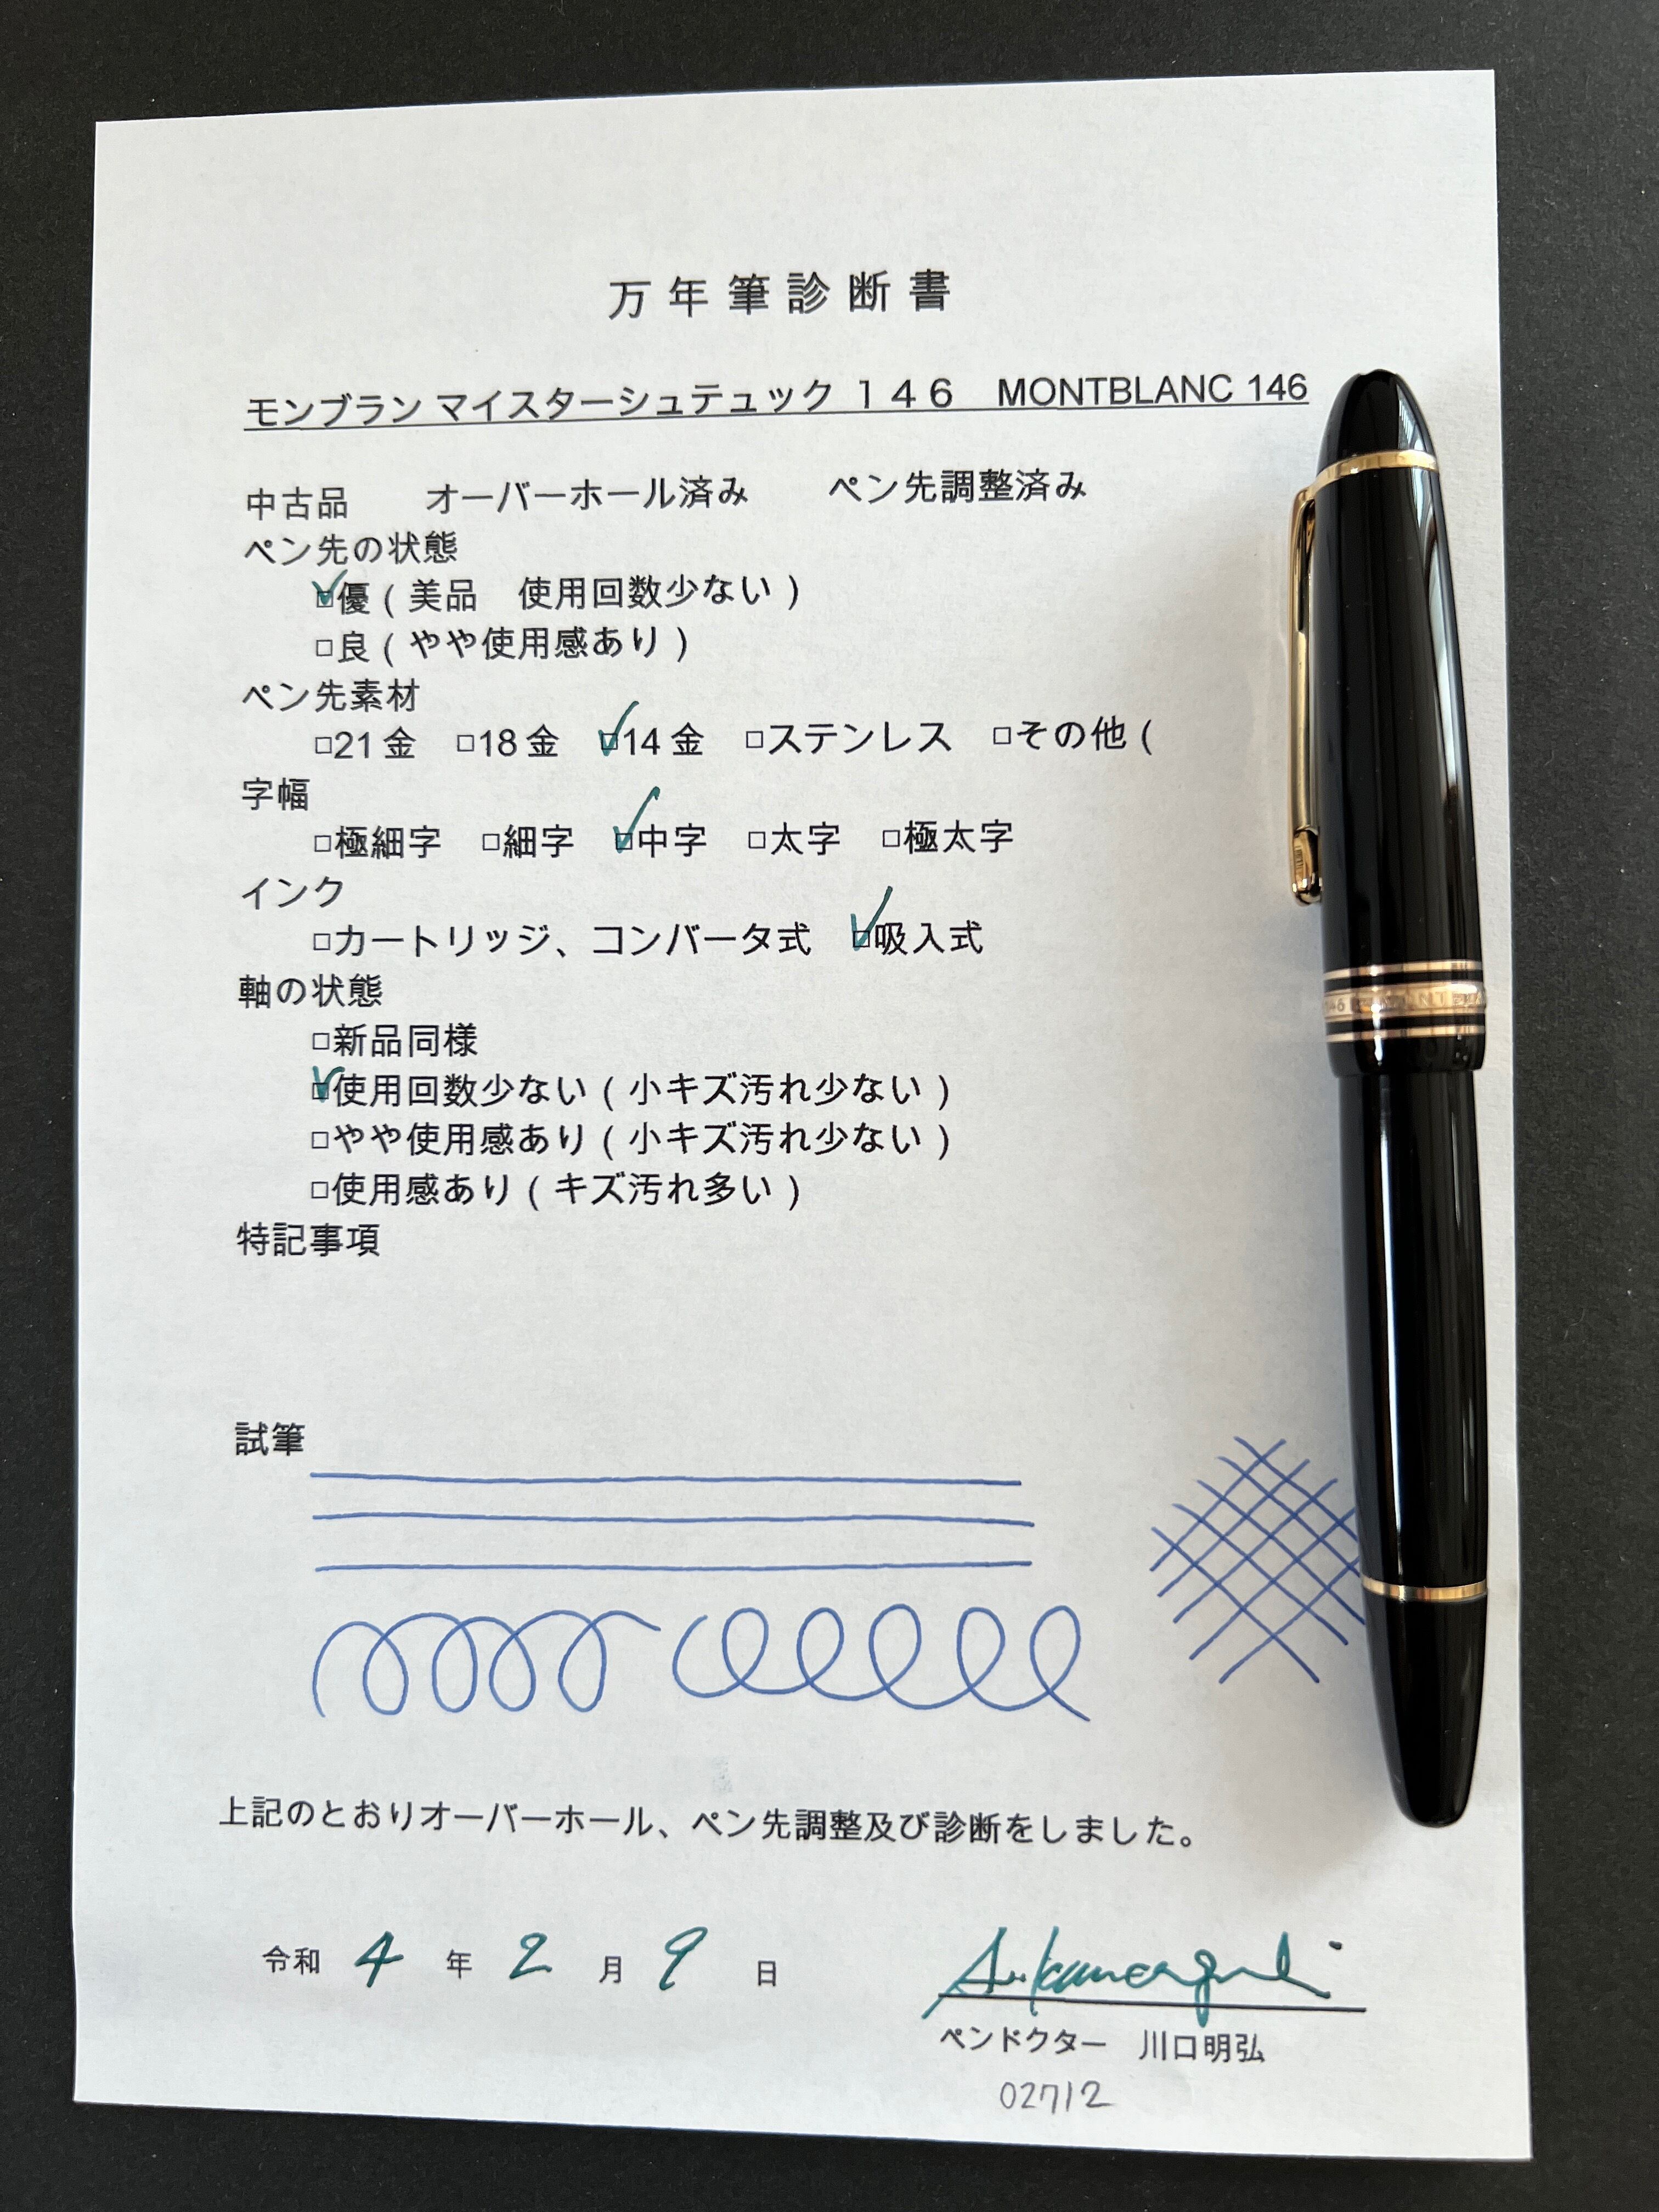 万年筆診断書
モンブラン マイスターシュテュック １４６　MONTBLANC 146
中古品　　オーバーホール済み　　ペン先調整済み
ペン先の状態
☑優（美品　使用回数少ない）
□良（やや使用感あり）
ペン先素材
□21金　□18金　☑14金　□ステンレス　□その他（
字幅
□極細字　□細字　☑中字　□太字　□極太字
インク
□カートリッジ、コンバータ式　☑吸入式
軸の状態
□新品同様
☑使用回数少ない（小キズ汚れ少ない）
□やや使用感あり（小キズ汚れ少ない）
□使用感あり（キズ汚れ多い）
特記事項
試筆
上記のとおりオーバーホール、ペン先調整及び診断をしました。
令和 4 年 2 月 9 日
ペンドクター　川口明弘
02712